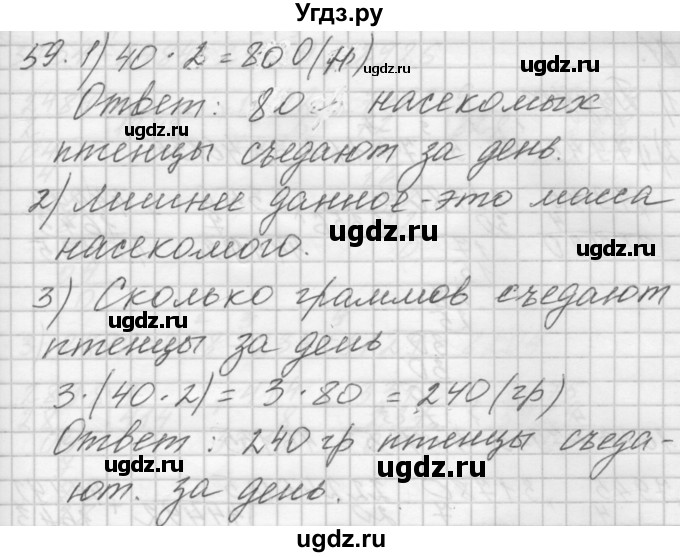 Угдз.ру
59. 1) 40 · 2 = 80 0(н)
Ответ: 80 насекомых
ugdz.ru
ugdz.ru
птенцы съедают за день.
2) Лишнее данное - это масса
ugdz.ru
ugdz.ru
насекомого.
3) Сколько граммов съедают
ugdz.ru
ugdz.ru
птенцы за день
3·(40·2) = 3·80 = 240 (гр)
ugdz.ru
Ответ: 240 гр птенцы съеда-
ugdz.ru
ugdz.ru
ют. за день.
ugdz.ru
ugdz.ru